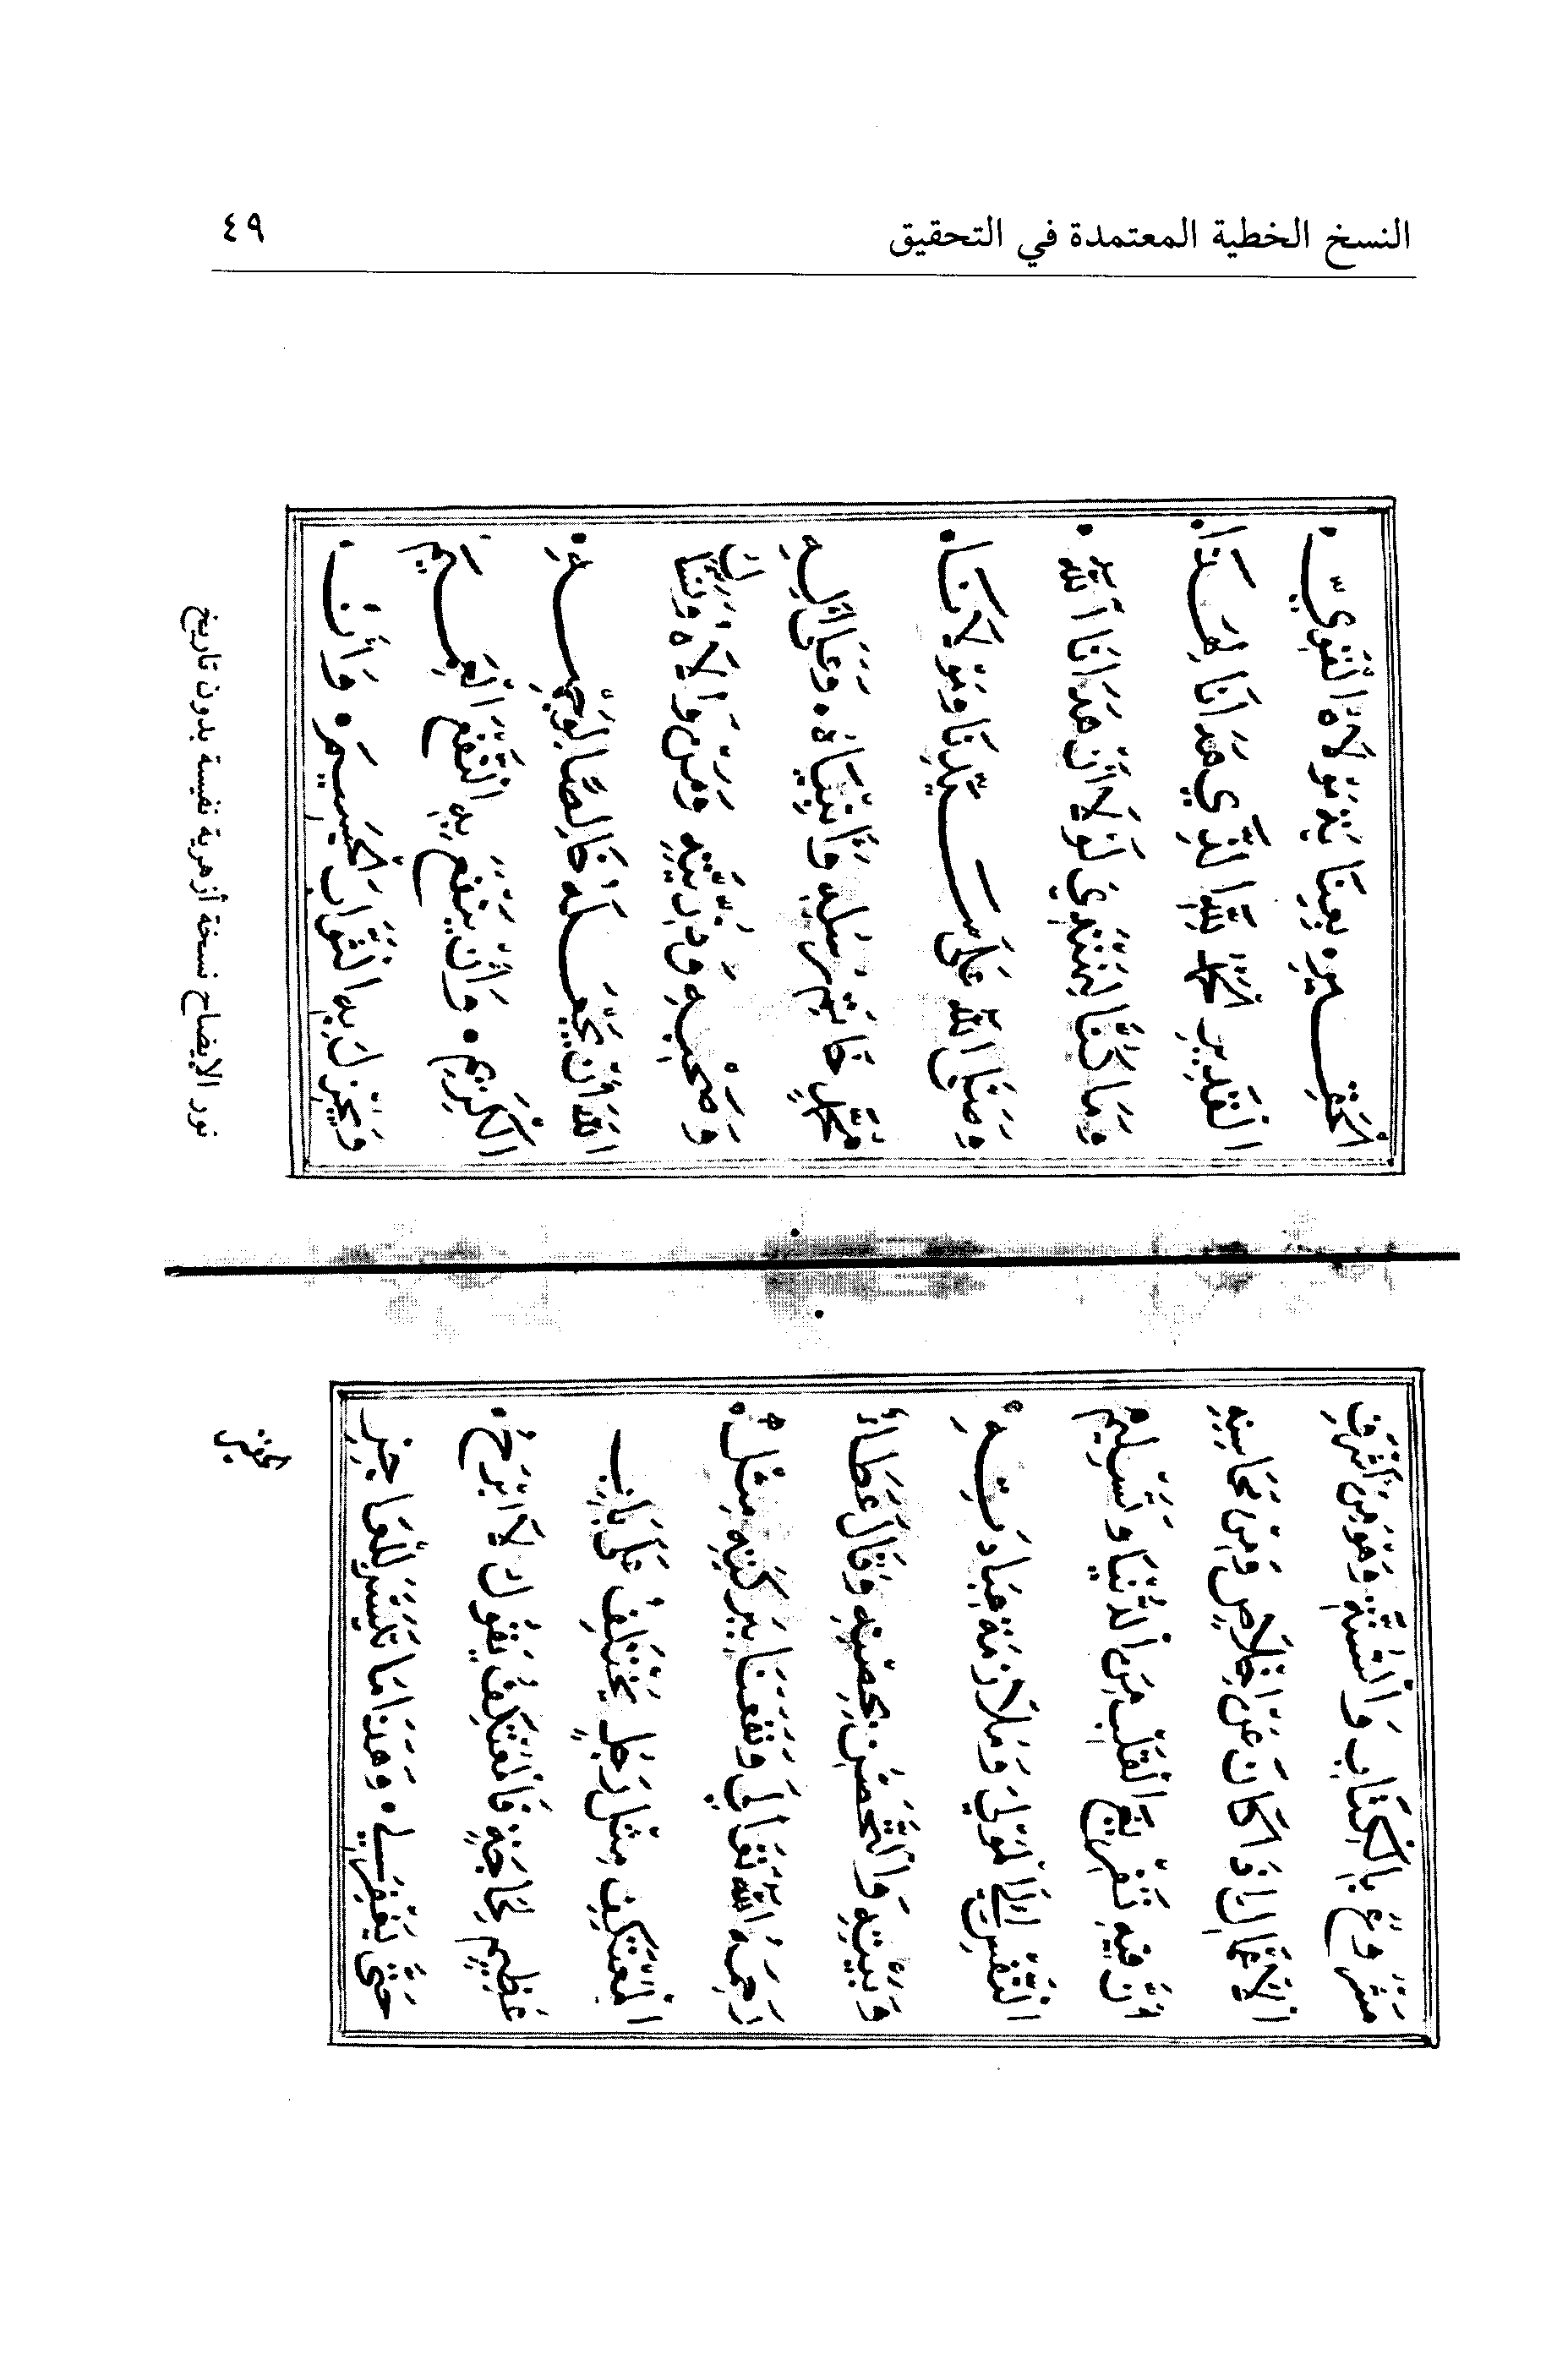 النسخ الخطية المعتمدة في التحقيق
٤٩
مَشْرُوعٌ بِالْكِتَابِ وَالسُّنَّةِ وَهُوَ مِنْ أَشْرَفِ
الْأَعْمَالِ إِذَا كَانَ عَنْ إِخْلَاصٍ وَمِنْ مَحَاسِنِهِ
أَنَّ فِيهِ تَفْرِيغَ الْقَلْبِ مِنَ الدُّنْيَا وَتَسْلِيمَ
النَّفْسِ إِلَى الْمَوْلَى وَمُلَازَمَةَ عِبَادَتِهِ
وَبَيْتِهِ وَالتَّحَصُّنَ بِحِصْنِهِ وَقَالَ عَطَاءُ
رَحِمَهُ اللهُ تَعَالَى وَنَفَعَنَا بِبَرَكَتِهِ مَثَلُ
الْمُعْتَكِفِ مَثَلُ رَجُلٍ يَخْتَلِفُ عَلَى بَابِ
عَظِيمٍ لِحَاجَةٍ فَالْمُعْتَكِفُ يَقُولُ لَا أَبْرَحُ
حَتَّى يَغْفِرَ لِي وَهَذَا مَا تَيَسَّرَ لِلْعَاجِزِ
الْحَقِيرِ
الْحَقِيرِ بِعِنَايَةِ مَوْلَاهُ الْقَوِيِّ
الْقَدِيرِ الْحَمْدُ لِلّهِ الَّذِي هَدَانَا لِهَذَا
وَمَا كُنَّا لِنَهْتَدِيَ لَوْلَا أَنْ هَدَانَا اللهُ
وَصَلَّى اللهُ عَلَى سَيِّدِنَا وَمَوْلَانَا
مُحَمَّدٍ خَاتِمِ رُسُلِهِ وَأَنْبِيَاهُ وَعَلَى آلِهِ
وَصَحْبِهِ وَذُرِّيَّتِهِ وَمَنْ وَالَاهُ وَنَسْأَلُ
اللهَ أَنْ يَجْعَلَهُ خَالِصًا لِوَجْهِهِ
الْكَرِيمِ وَأَنْ يَنْفَعَ بِهِ النَّفْعَ الْعَمِيمَ
وَيُجْزِلَ بِهِ الثَّوَابَ الْجَسِيمَ وَأَنْ
نور الإيضاح نسخة أزهرية نفيسة بدون تاريخ